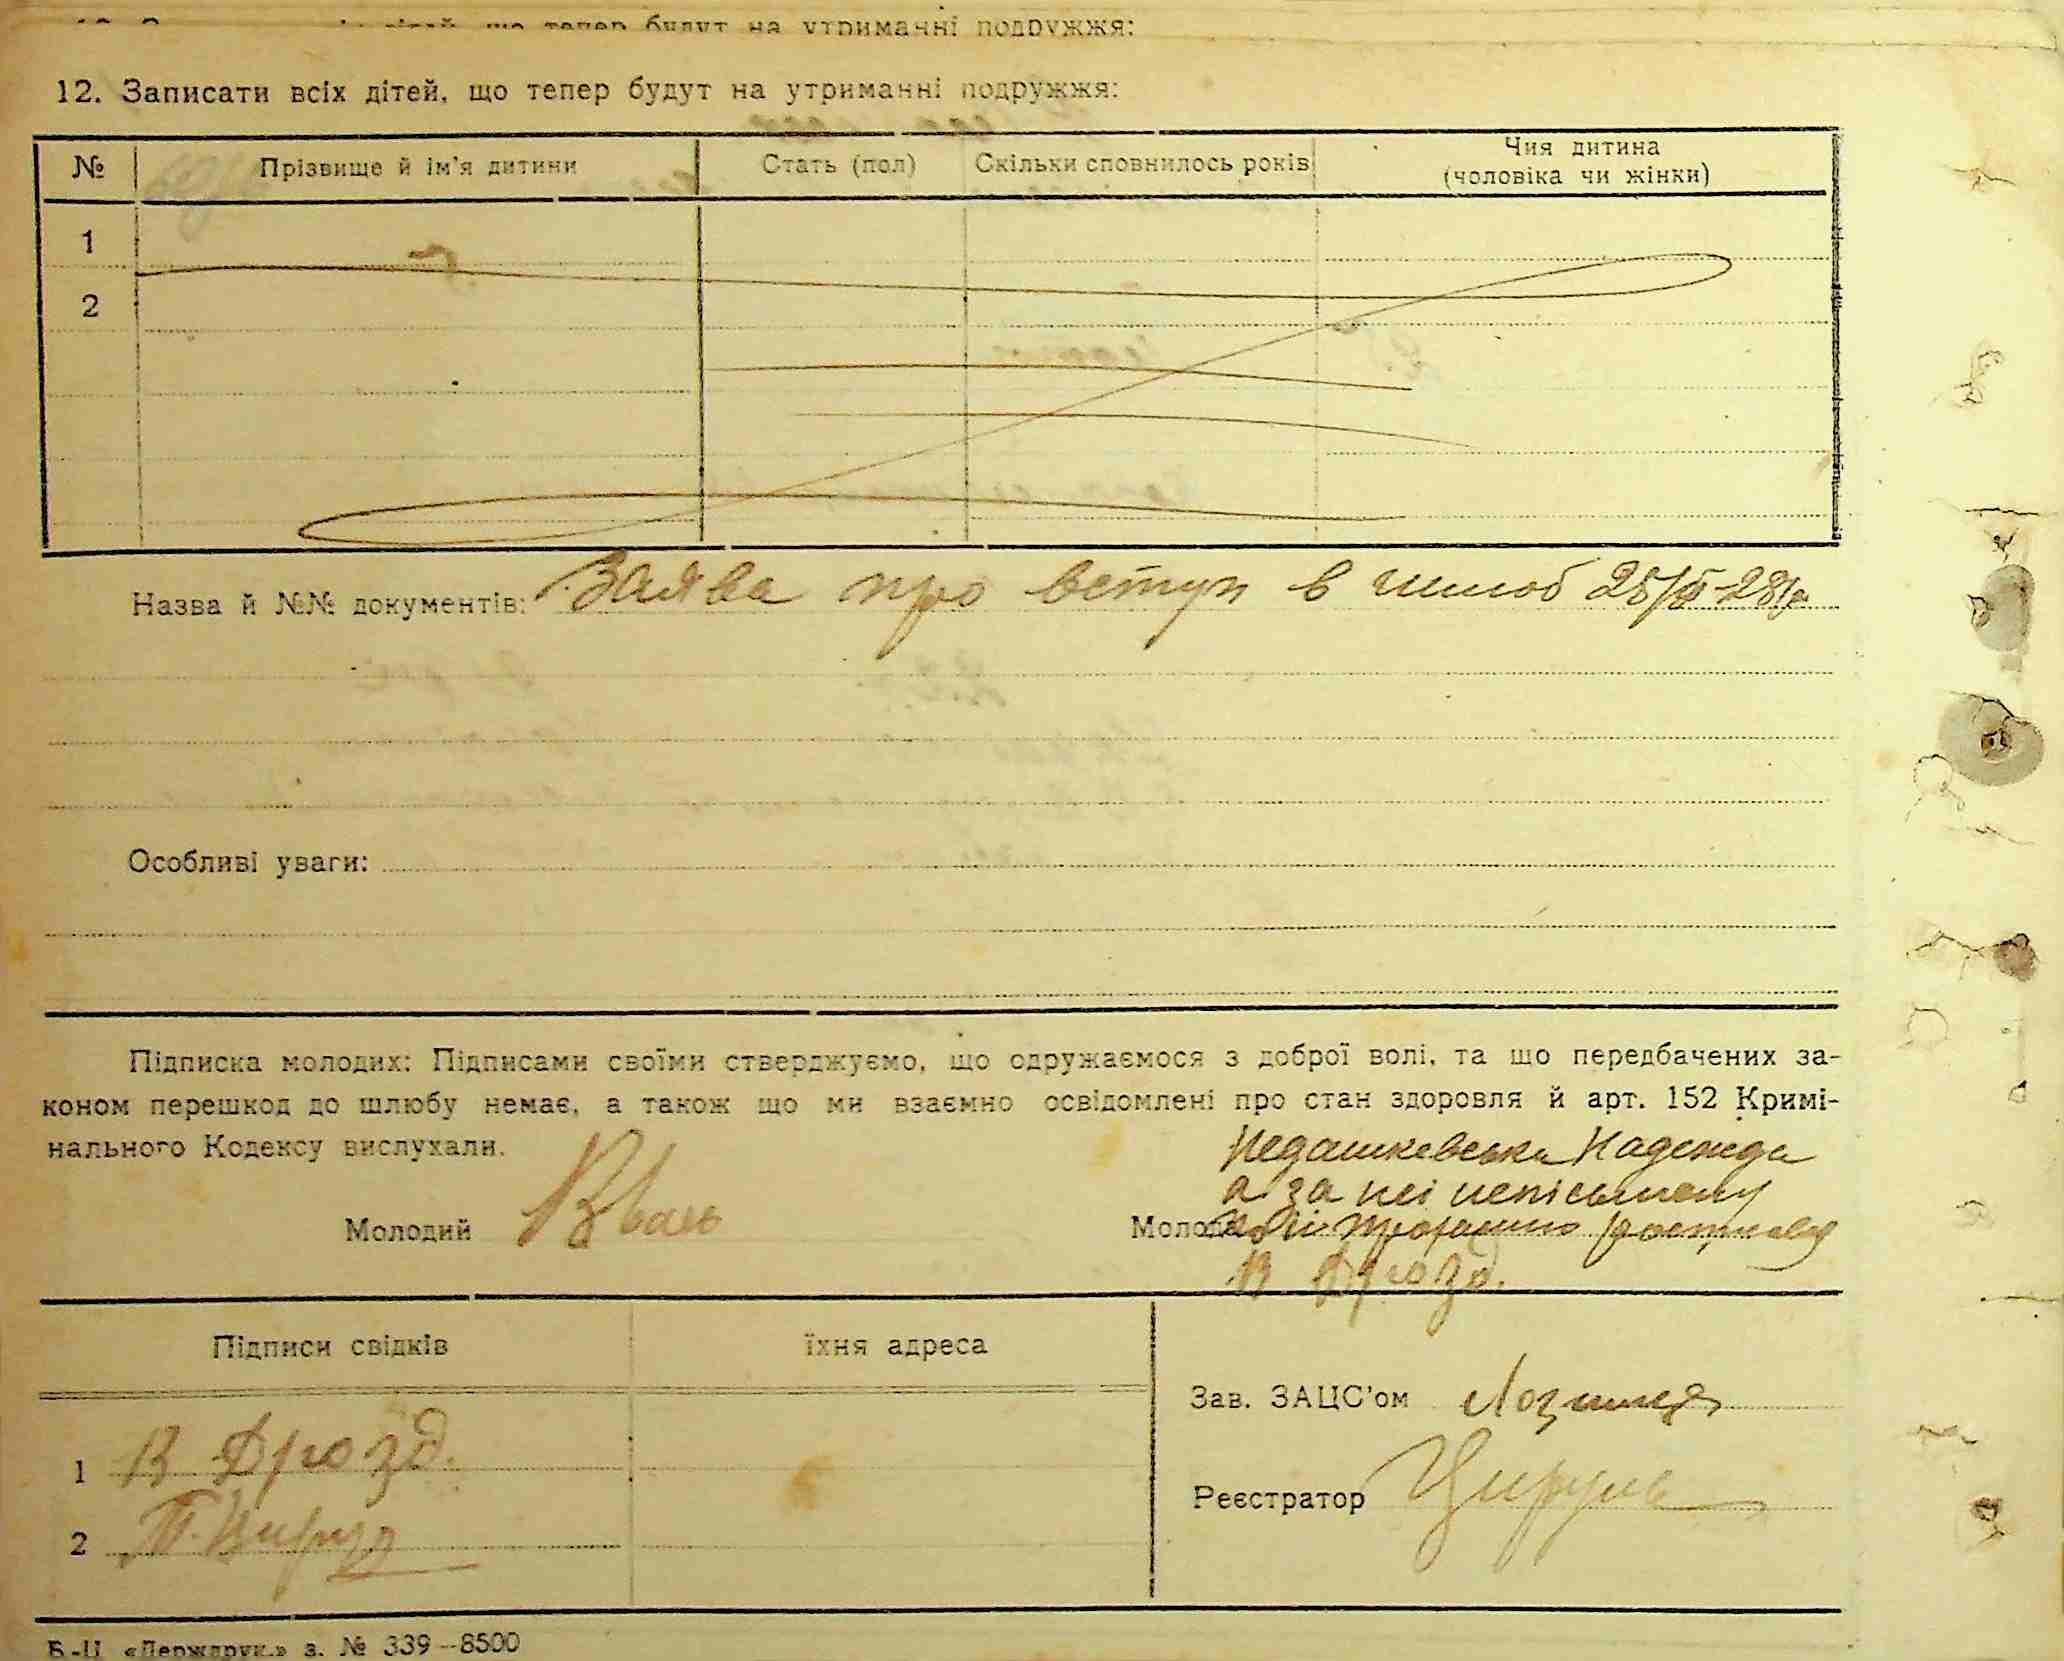 тепер будут на утриманні подружжя:
12. Записати всіх дітей, що тепер будут на утриманні подружжя:
№ Прізвище й ім'я дитини Стать (пол) Скільки сповнилось років Чия дитина (чоловіка чи жінки)
1
2
Назва й №№ документів: Заява про вступ в шлюб
Особливі уваги:
Підписка молодих: Підписами своїми стверджуємо, що одружаємося з доброї волі, та що передбачених за-
коном перешкод до шлюбу немає, а також що ми взаємно освідомлені про стан здоровля й арт. 152 Кримі-
нального Кодексу вислухали.
Недашковська Надежда
а за неї
Молодий Молода
В Дрозд.
Підписи свідків їхня адреса
Зав. ЗАЦС'ом
1 В Дрозд.
Реєстратор Цируль
2
Б.-Ц. «Держдрук.» з. № 339—8500